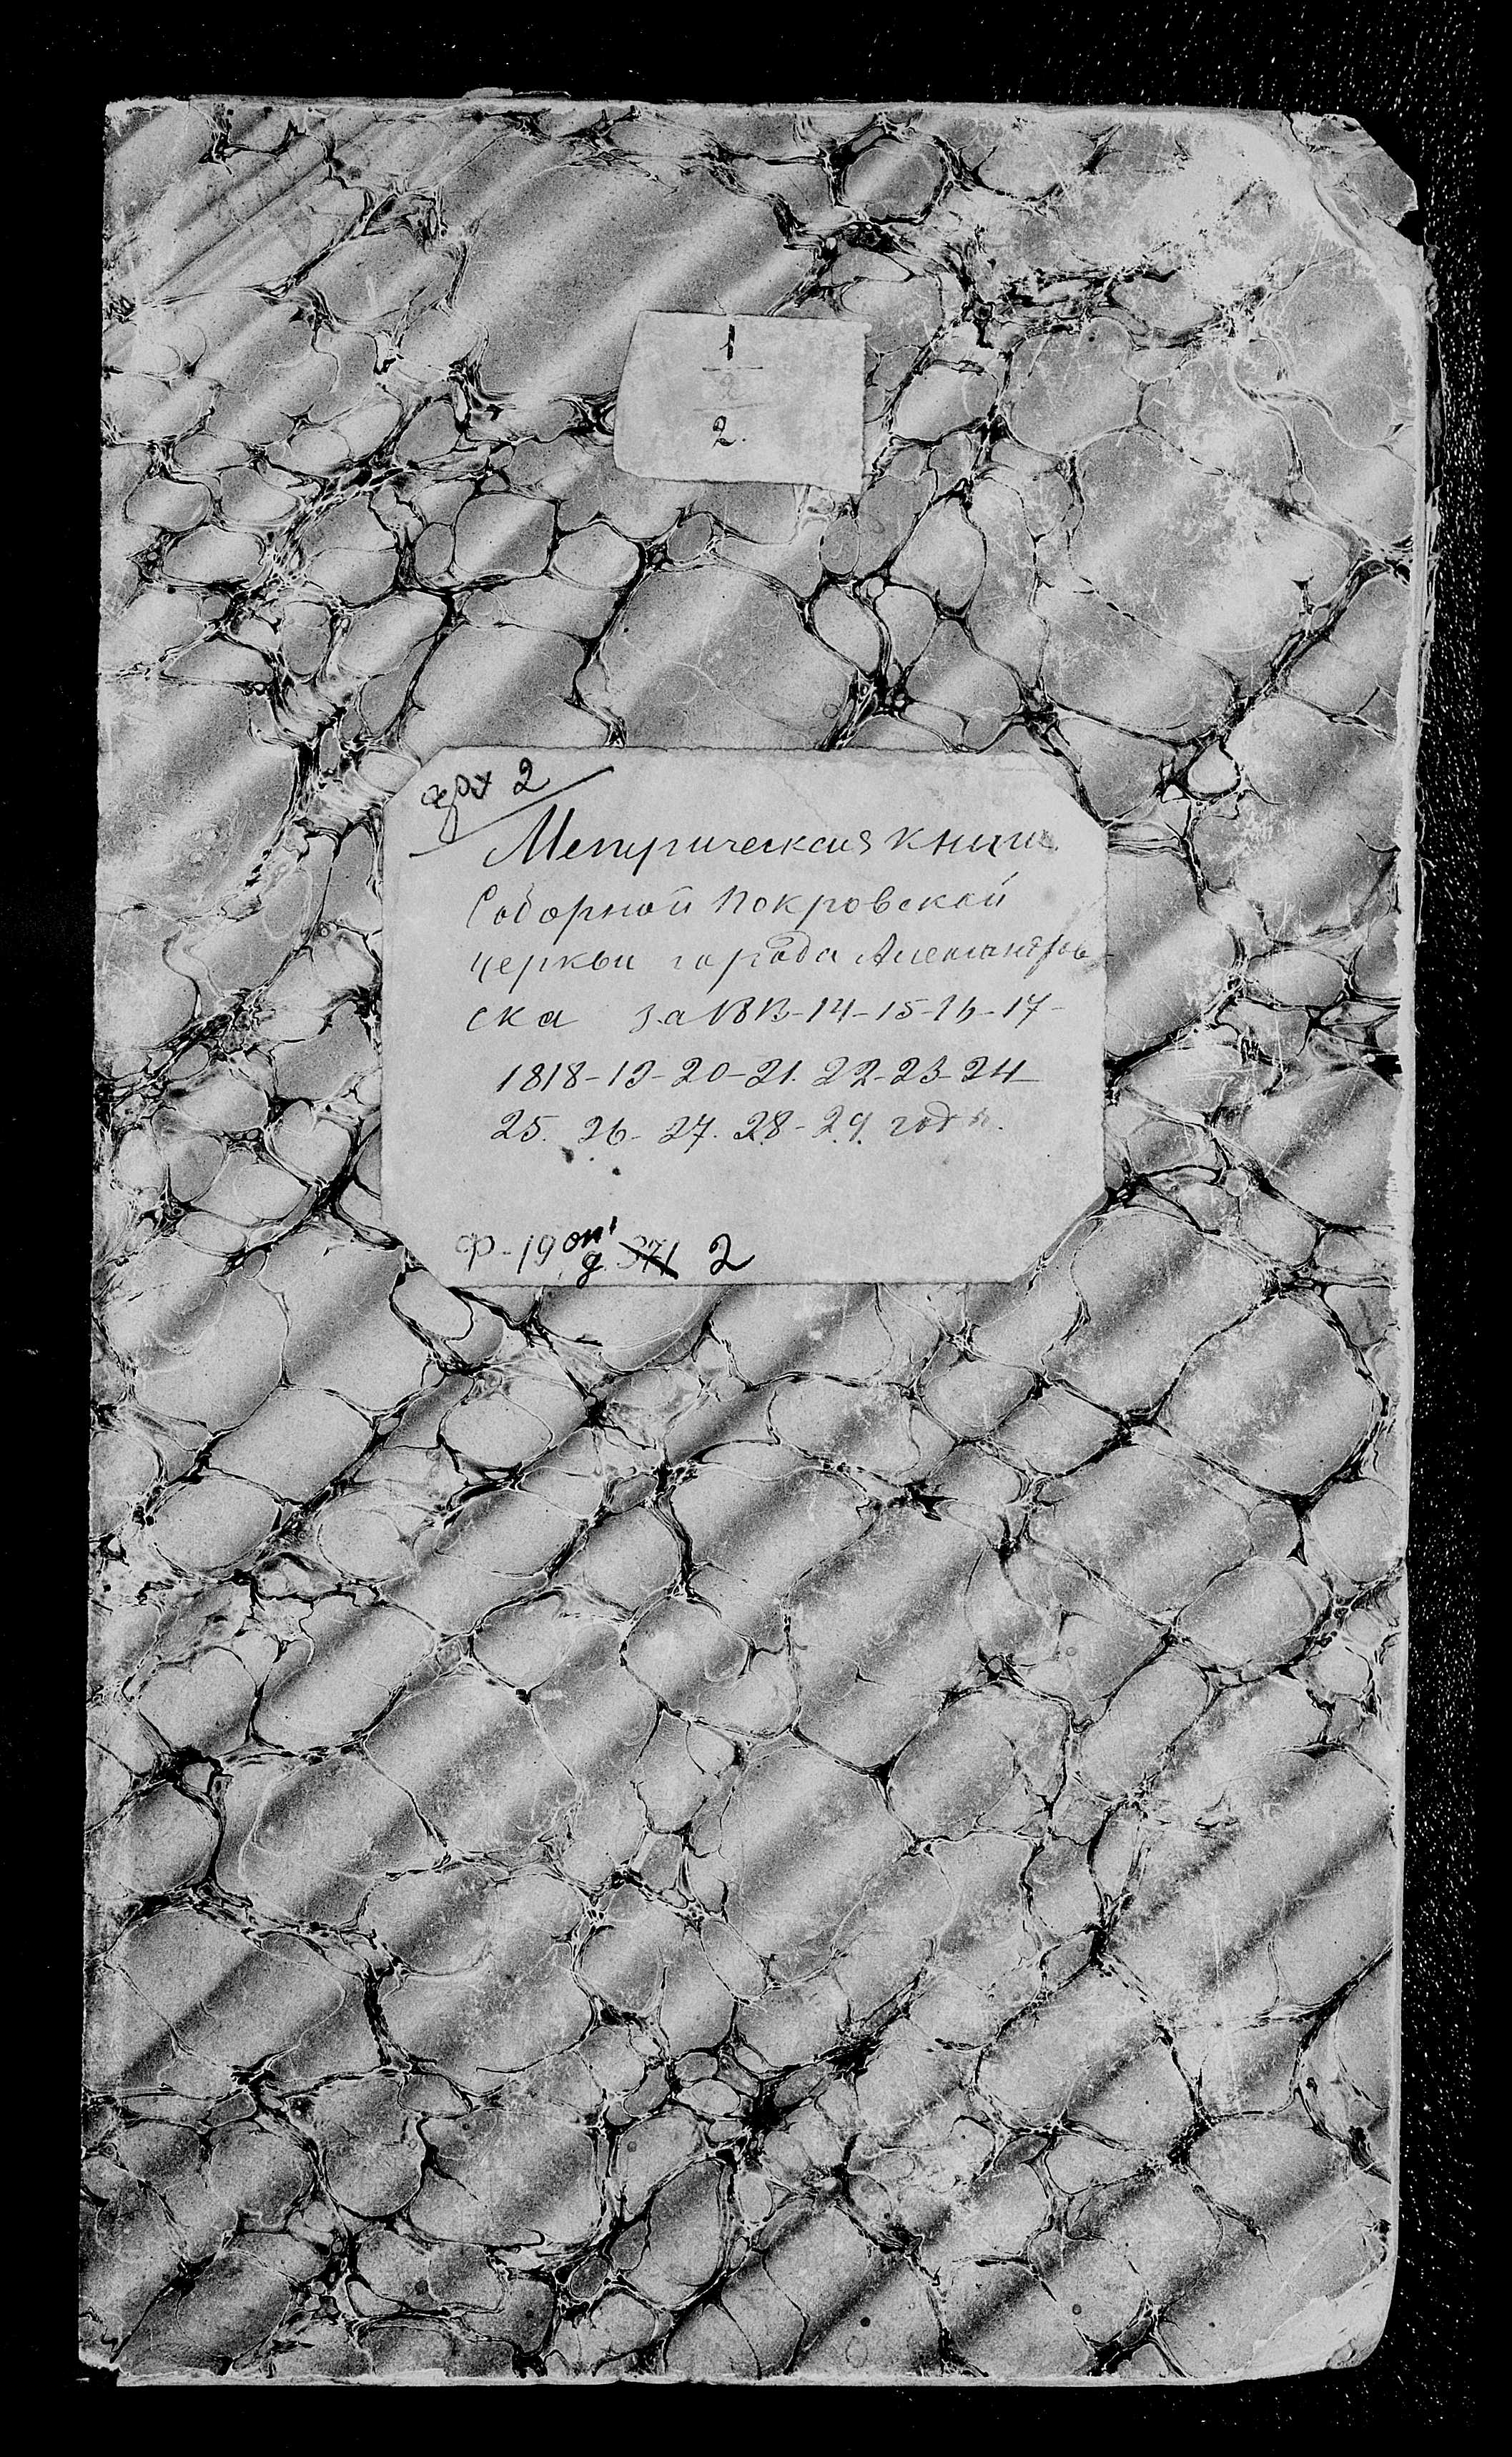 1
2
2.
арх 2
Метрическия книги
Соборной Покровской
церкви города Александров-
ска за 1813-14-15-16-17-
1818-19-20-21. 22-23-24-
25. 26- 27. 28-29. годы.
Ф-19 оп 1
д 371 2